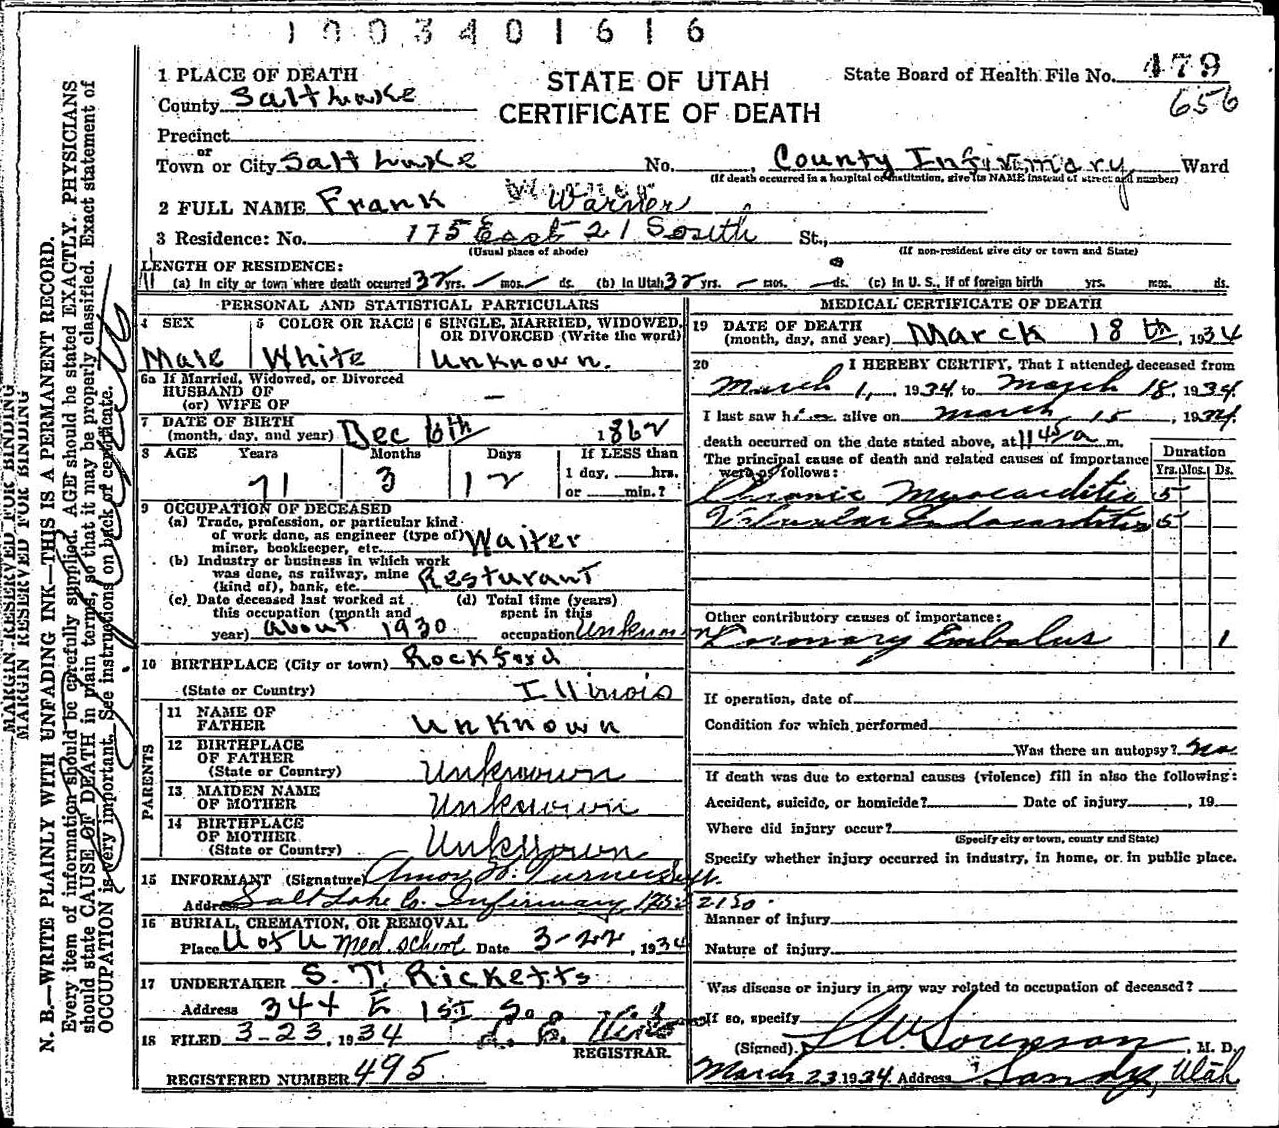 1003401616
1 PLACE OF DEATH
STATE OF UTAH
CERTIFICATE OF DEATH
State Board of Health File No. 479
656
County Salt Lake
Precinct
or
Town or City Salt Lake No. , County Infirmary Ward
(If death occurred in a hospital or institution, give its NAME instead of street and number)
2 FULL NAME Frank Warner
3 Residence: No. 175 East 21 South St.,
(Usual place of abode) (If non-resident give city or town and State)
LENGTH OF RESIDENCE:
(a) In city or town where death occurred 32 yrs. — mos. — ds. (b) In Utah 32 yrs. — mos. — ds. (c) In U. S., if of foreign birth yrs. mos. ds.
PERSONAL AND STATISTICAL PARTICULARS
4 SEX 5 COLOR OR RACE 6 SINGLE, MARRIED, WIDOWED, OR DIVORCED (Write the word)
Male White Unknown.
6a If Married, Widowed, or Divorced
HUSBAND OF
(or) WIFE OF —
7 DATE OF BIRTH
(month, day, and year) Dec 6th 1862
8 AGE Years Months Days If LESS than
1 day, hrs.
or min.?
71 3 12
9 OCCUPATION OF DECEASED
(a) Trade, profession, or particular kind
of work done, as engineer (type of)
miner, bookkeeper, etc. Waiter
(b) Industry or business in which work
was done, as railway, mine
(kind of), bank, etc. Resturant
(c) Date deceased last worked at
this occupation (month and
year) about 1930
(d) Total time (years)
spent in this
occupation Unknown
10 BIRTHPLACE (City or town) Rockford
(State or Country) Illinois
PARENTS
11 NAME OF
FATHER Unknown
12 BIRTHPLACE
OF FATHER
(State or Country) Unknown
13 MAIDEN NAME
OF MOTHER Unknown
14 BIRTHPLACE
OF MOTHER
(State or Country) Unknown
15 INFORMANT (Signature)
Address Salt Lake Co. Infirmary
16 BURIAL, CREMATION, OR REMOVAL
Place U of U Med. school Date 3-22, 1934
17 UNDERTAKER S. T. Ricketts
Address 344 E 1st So.
18 FILED 3-23, 1934
REGISTRAR.
REGISTERED NUMBER 495
MEDICAL CERTIFICATE OF DEATH
19 DATE OF DEATH
(month, day, and year) March 18th, 1934
20 I HEREBY CERTIFY, That I attended deceased from
March 1, 1934 to March 18, 1934.
I last saw him alive on March 15, 1934.
death occurred on the date stated above, at 1145/a m.
The principal cause of death and related causes of importance
were as follows:
Duration
Yrs. Mos. Ds.
Chronic Myocarditis 5
Valvular Endocarditis 5
Other contributory causes of importance:
Coronary Embolus 1
If operation, date of
Condition for which performed
Was there an autopsy? no
If death was due to external causes (violence) fill in also the following:
Accident, suicide, or homicide? Date of injury , 19
Where did injury occur?
(Specify city or town, county and State)
Specify whether injury occurred in industry, in home, or in public place.
Manner of injury
Nature of injury
Was disease or injury in any way related to occupation of deceased?
If so, specify
(Signed) Sorenson, M. D.
March 23 1934 Address Sandy, Utah
MARGIN RESERVED FOR BINDING
MARGIN RESERVED FOR BINDING
N. B.—WRITE PLAINLY WITH UNFADING INK—THIS IS A PERMANENT RECORD.
Every item of information should be carefully supplied. AGE should be stated EXACTLY. PHYSICIANS
should state CAUSE OF DEATH in plain terms, so that it may be properly classified. Exact statement of
OCCUPATION is very important. See instructions on back of certificate.